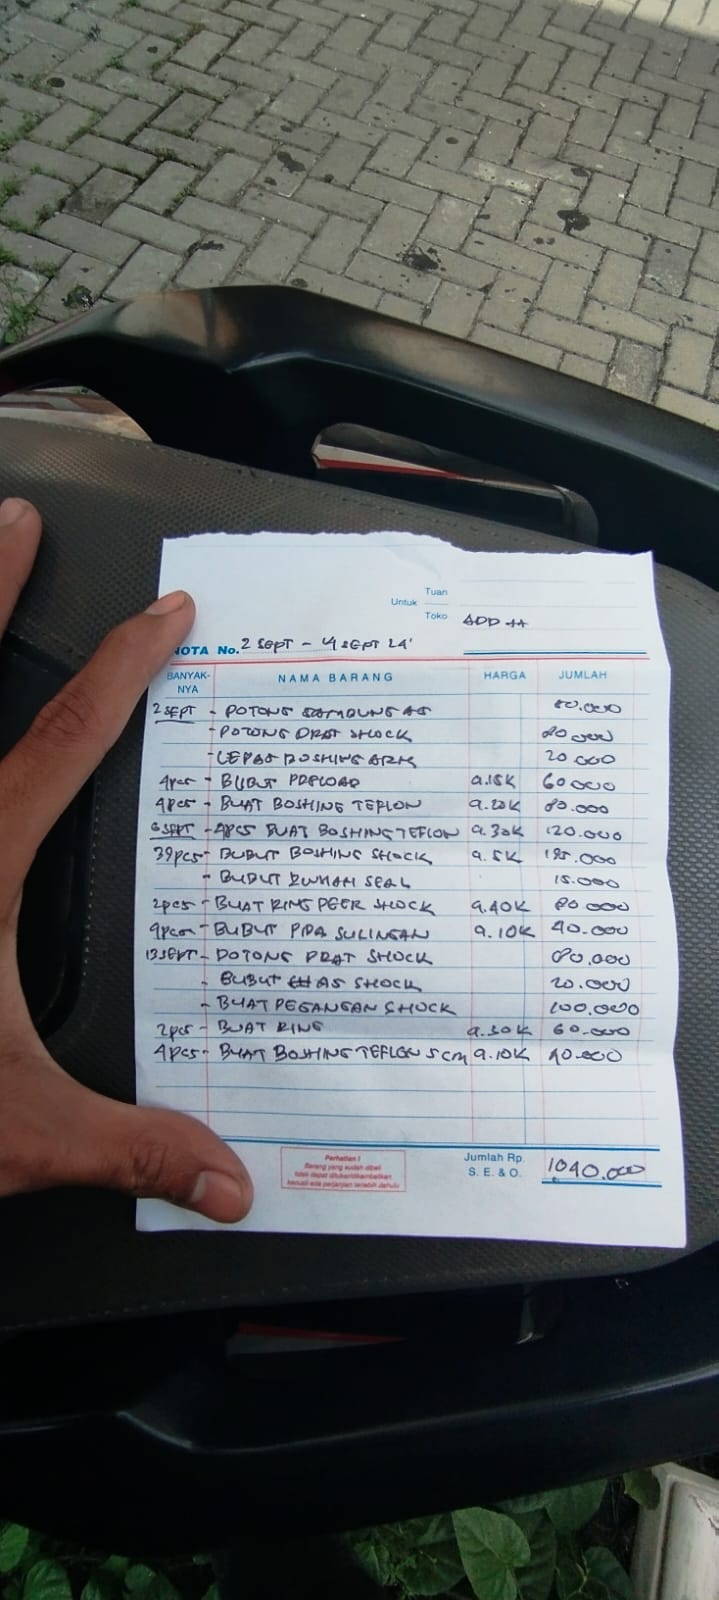 Tuan
Untuk
Toko ADD H
NOTA No. 2 SEPT - 4 SEPT 24'
BANYAK-NYA NAMA BARANG HARGA JUMLAH
2 SEPT - POTONG SAMBUNG AS 80.000
- POTONG DRAT SHOCK 80.000
- LEPAS BOSHING ARM 20.000
4pcs - BUBUT PRELOAD a.15K 60.000
4pcs - BUAT BOSHING TEFLON a.20K 80.000
3 SEPT - 4PCS BUAT BOSHING TEFLON a.30K 120.000
39pcs - BUBUT BOSHING SHOCK a.5K 195.000
- BUBUT RUMAH SEAL 15.000
2pcs - BUAT RING PEER SHOCK a.40K 80.000
BUBUT PIPA SULINGAN a.10K 40.000
13 SEPT - POTONG DRAT SHOCK 80.000
- BUBUT AS SHOCK 20.000
- BUAT PEGANGAN SHOCK 100.000
2pcs - BUAT RING a.30K 60.000
4pcs - BUAT BOSHING TEFLON 5cm a.10K 40.000
Perhatian !
Barang yang sudah dibeli
tidak dapat ditukar/dikembalikan
kecuali ada perjanjian terlebih dahulu
Jumlah Rp. 1.040.000
S. E. & O.